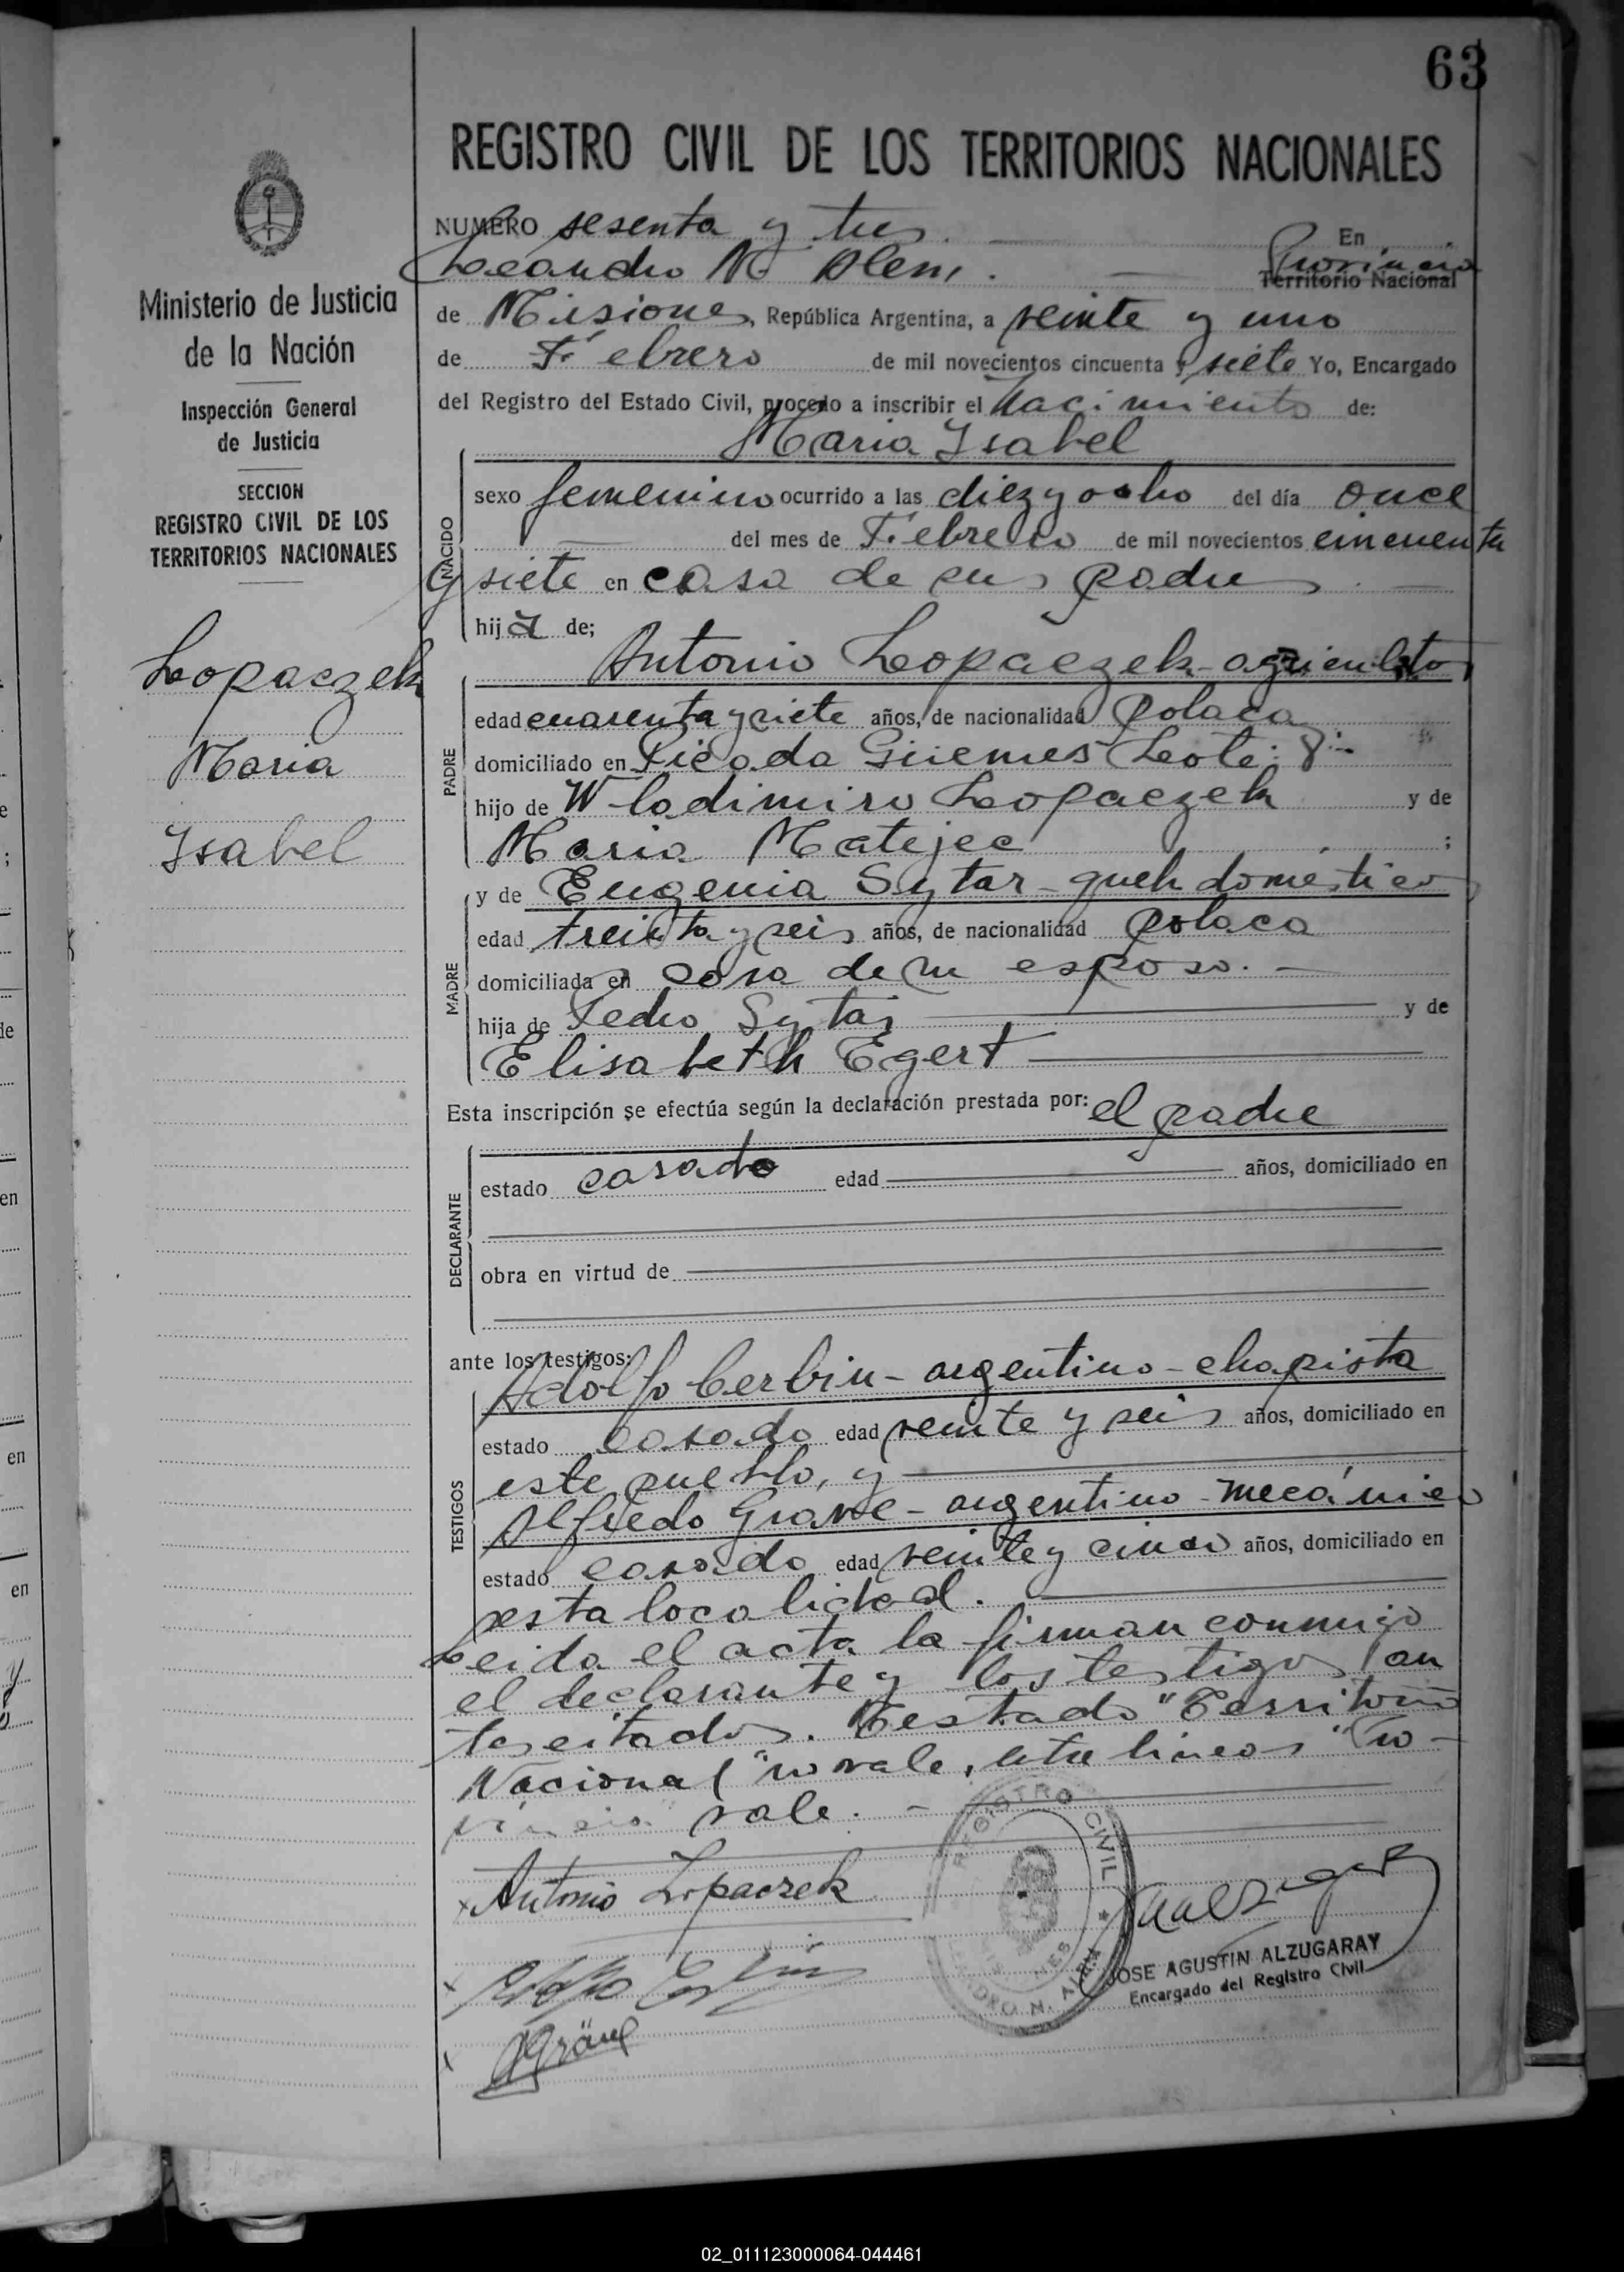 63
REGISTRO CIVIL DE LOS TERRITORIOS NACIONALES
Ministerio de Justicia
de la Nación
Inspección General
de Justicia
SECCION
REGISTRO CIVIL DE LOS
TERRITORIOS NACIONALES
Lopaczek
Maria
Isabel
NUMERO sesenta y tres. En
Leandro N. Alem. Provincia
Territorio Nacional
de Misiones, República Argentina, a veinte y uno
de Febrero de mil novecientos cincuenta y siete Yo, Encargado
del Registro del Estado Civil, procedo a inscribir el Nacimiento de:
Maria Isabel
NACIDO
sexo femenino ocurrido a las diez y ocho del día once
del mes de Febrero de mil novecientos cincuenta
y siete en casa de sus padres
hija de;
PADRE
Antonio Lopaczek - agricultor
edad cuarenta y siete años, de nacionalidad polaca
domiciliado en Picada Güemes Lote: 8.-
hijo de Wladimiro Lopaczek y de
Maria Matejec ;
MADRE
y de Eugenia Sytar - queh. domésticos
edad treinta y seis años, de nacionalidad polaca
domiciliada en casa de su esposo. -
hija de Pedro Sytar y de
Elisabeth Egert
Esta inscripción se efectúa según la declaración prestada por: el padre
DECLARANTE
estado casado edad años, domiciliado en
obra en virtud de
ante los testigos:
TESTIGOS
Adolfo Cerbin - argentino - chapista
estado casado edad veinte y seis años, domiciliado en
este pueblo, y
Alfredo Grane - argentino - mecánico
estado casado edad veinte y cinco años, domiciliado en
esta localidad.
Leida el acta la firman conmigo
el declarante y los testigos an
tes citados. Testado "Territorio
Nacional" no vale, entre lineas "Pro-
vincia" vale. -
Antonio Lopaczek
REGISTRO CIVIL
JOSE AGUSTIN ALZUGARAY
Encargado del Registro Civil
02_011123000064-044461